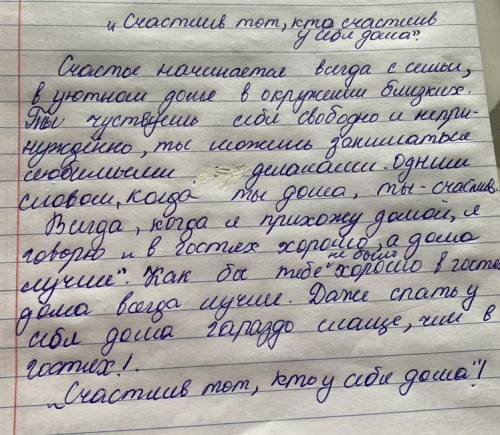 „Счастлив тот, кто счастлив
у себя дома".
Счастье начинается всегда с семьи,
в уютном доме в окружении близких.
Ты чуствуешь себя свободно и непри-
нуждённо, ты можешь заниматься
любимыми делами. Одним
словом, когда ты дома, ты - счастлив.
Всегда, когда я прихожу домой, я
говорю „в гостях хорошо, а дома
лучше". Как бы тебе не было хорошо в гостях
дома всегда лучше. Даже спать у
себя дома гараздо слаще, чем в
гостях!
„Счастлив тот, кто у себя дома"!